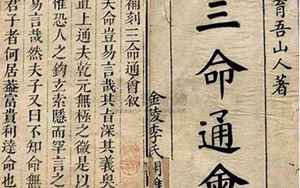 育吾山人著
三命通會
金陵李氏
補刻三命通會叙
命豈易言哉其旨深其義奧
上通夫乾元無極之微是以
惟恐人之鈎玄索隱而罕言之
易言哉然夫子又曰不知命無
君子者何居蓋富貴利達命也